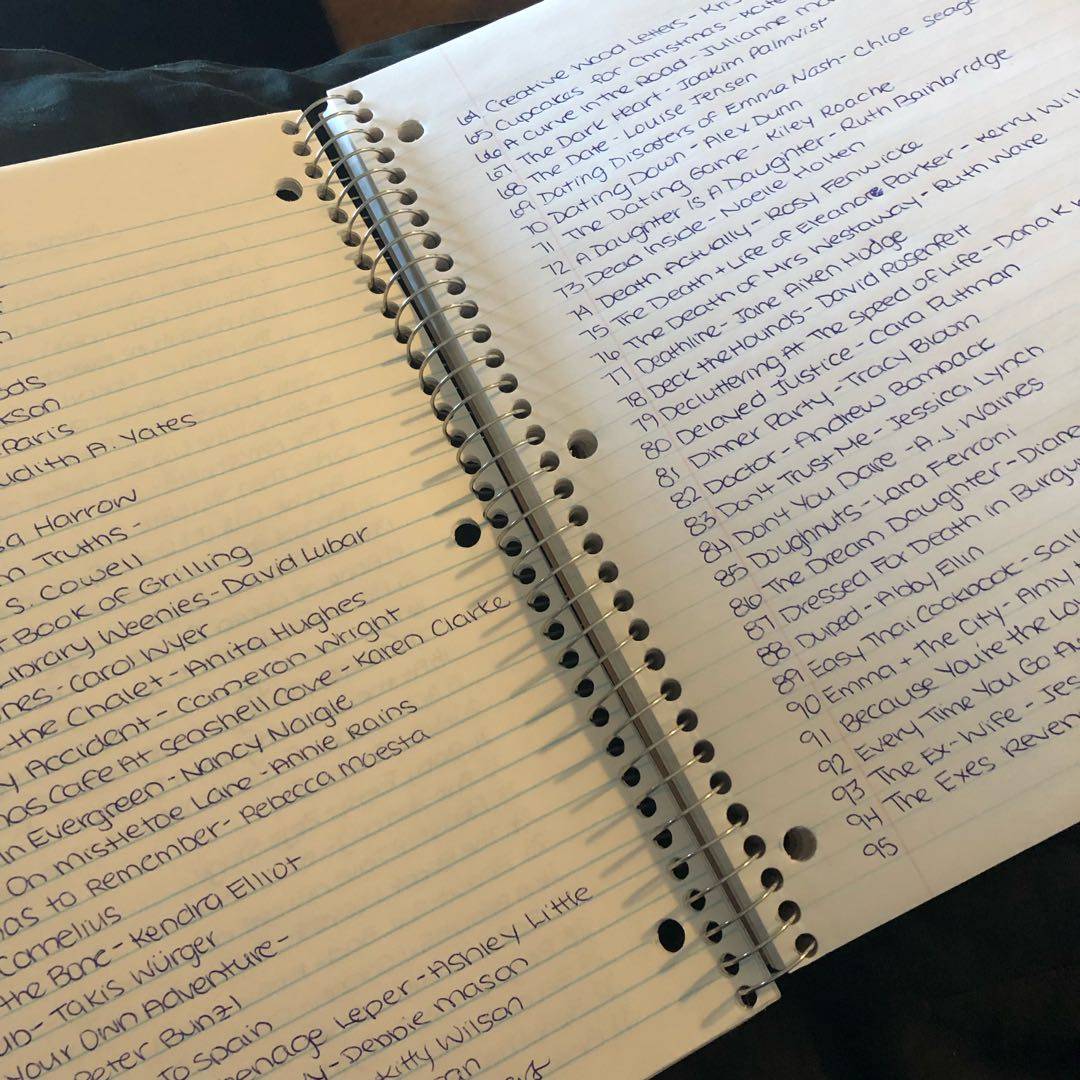 ods
kson
Paris
udith A. Yates
sa Harrow
n Truths -
S. Cowell
Book of Grilling
Library Weenies - David Lubar
nes - Carol Wyer
the Chalet - Anita Hughes
y Accident - Cameron Wright
mas Cafe At Seashell Cove - Karen Clarke
In Evergreen - Nancy Naigle
On Mistletoe Lane - Annie Rains
as to Remember - Rebecca Moesta
Cornelius
the Bone - Kendra Elliot
ub - Takis Würger
your Own Adventure -
Peter Bunzl
To Spain
enage Leper - Ashley Little
y - Debbie Mason
Kitty Wilson
an
64 Creative Wood Letters - Kris
65 Cupcakes for Christmas - Kate
66 A Curve in the Road - Julianne Ma
67 The Dark Heart - Joakim Palmvist
68 The Date - Louise Jensen
69 Dating Disasters of Emma Nash - Chloe Seage
70 Dating Down - Alex Dunn
71 The Dating Game - Kiley Roache
72 A Daughter Is A Daughter - Ruth Bainbridge
73 Dead Inside - Noelle Holten
74 Death Actually - Rosy Fenwicke
75 The Death + Life of Eleanor Parker - Kerry Wil
76 The Death of Mrs Westaway - Ruth Ware
77 Deathline - Jane Aiken Hodge
78 Deck the Hounds - David Rosenfelt
79 Decluttering At The Speed of Life - Dana K W
80 Delayed Justice - Cara Putman
81 Dinner Party - Tracy Bloom
82 Doctor - Andrew Bomback
83 Don't Trust Me - Jessica Lynch
84 Don't You Dare - A.J. Waines
85 Doughnuts - Lara Ferroni
86 The Dream Daughter - Diane
87 Dressed For Death in Burgu
88 Duped - Abby Ellin
89 Easy Thai Cookbook - Sall
90 Emma + The City - Amy
91 Because You're the Lo
92 Every Time You Go Aw
93 The Ex-Wife - Jes
94 The Exes Reven
95